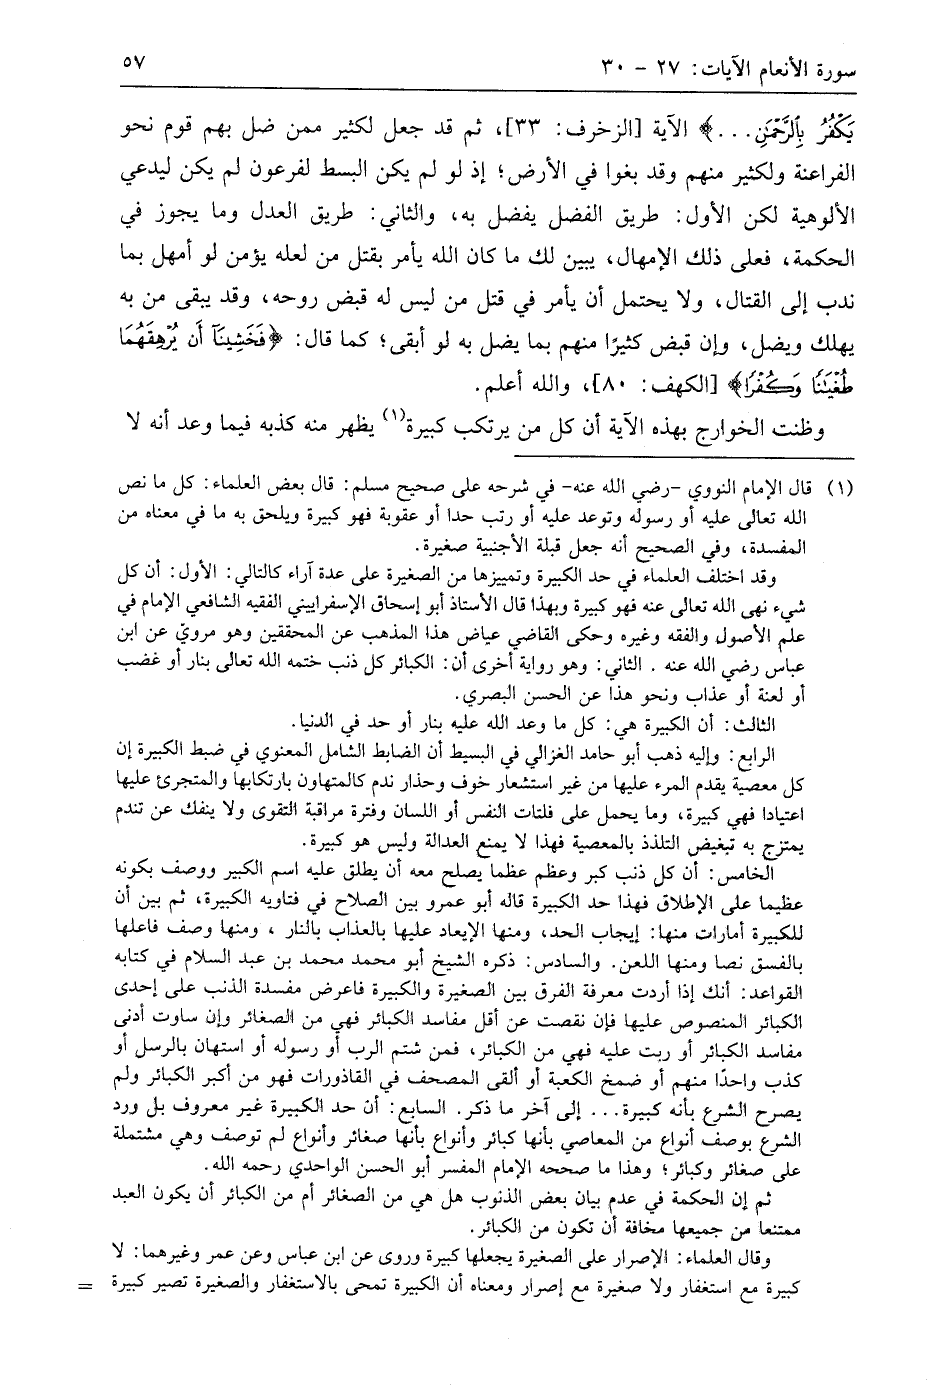 سورة الأنعام الآيات: ٢٧ - ٣٠
٥٧
يَكْفُرُ بِالرَّحْمَٰنِ...﴾ الآية [الزخرف: ٣٣]، ثم قد جعل لكثير ممن ضل بهم قوم نحو
الفراعنة ولكثير منهم وقد بغوا في الأرض؛ إذ لو لم يكن البسط لفرعون لم يكن ليدعي
الألوهية لكن الأول: طريق الفضل يفضل به، والثاني: طريق العدل وما يجوز في
الحكمة، فعلى ذلك الإمهال، يبين لك ما كان الله يأمر بقتل من لعله يؤمن لو أمهل بما
ندب إلى القتال، ولا يحتمل أن يأمر في قتل من ليس له قبض روحه، وقد يبقى من به
يهلك ويضل، وإن قبض كثيرًا منهم بما يضل به لو أبقى؛ كما قال: ﴿فَخَشِينَآ أَن يُرْهِقَهُمَا
طُغْيَٰنًا وَكُفْرًا﴾ [الكهف: ٨٠]، والله أعلم.
وظنت الخوارج بهذه الآية أن كل من يرتكب كبيرة(١) يظهر منه كذبه فيما وعد أنه لا
(١) قال الإمام النووي -رضي الله عنه- في شرحه على صحيح مسلم: قال بعض العلماء: كل ما نص
الله تعالى عليه أو رسوله وتوعد عليه أو رتب حدا أو عقوبة فهو كبيرة ويلحق به ما في معناه من
المفسدة، وفي الصحيح أنه جعل قبلة الأجنبية صغيرة.
وقد اختلف العلماء في حد الكبيرة وتمييزها من الصغيرة على عدة آراء كالتالي: الأول: أن كل
شيء نهى الله تعالى عنه فهو كبيرة وبهذا قال الأستاذ أبو إسحاق الإسفراييني الفقيه الشافعي الإمام في
علم الأصول والفقه وغيره وحكى القاضي عياض هذا المذهب عن المحققين وهو مرويّ عن ابن
عباس رضي الله عنه . الثاني: وهو رواية أخرى أن: الكبائر كل ذنب ختمه الله تعالى بنار أو غضب
أو لعنة أو عذاب ونحو هذا عن الحسن البصري.
الثالث: أن الكبيرة هي: كل ما وعد الله عليه بنار أو حد في الدنيا.
الرابع: وإليه ذهب أبو حامد الغزالي في البسيط أن الضابط الشامل المعنوي في ضبط الكبيرة إن
كل معصية يقدم المرء عليها من غير استشعار خوف وحذار ندم كالمتهاون بارتكابها والمتجرئ عليها
اعتيادا فهي كبيرة، وما يحمل على فلتات النفس أو اللسان وفترة مراقبة التقوى ولا ينفك عن تندم
يمتزج به تبغيض التلذذ بالمعصية فهذا لا يمنع العدالة وليس هو كبيرة.
الخامس: أن كل ذنب كبر وعظم عظما يصلح معه أن يطلق عليه اسم الكبير ووصف بكونه
عظيما على الإطلاق فهذا حد الكبيرة قاله أبو عمرو بين الصلاح في فتاويه الكبيرة، ثم بين أن
للكبيرة أمارات منها: إيجاب الحد، ومنها الإيعاد عليها بالعذاب بالنار ، ومنها وصف فاعلها
بالفسق نصا ومنها اللعن. والسادس: ذكره الشيخ أبو محمد محمد بن عبد السلام في كتابه
القواعد: أنك إذا أردت معرفة الفرق بين الصغيرة والكبيرة فاعرض مفسدة الذنب على إحدى
الكبائر المنصوص عليها فإن نقصت عن أقل مفاسد الكبائر فهي من الصغائر وإن ساوت أدنى
مفاسد الكبائر أو ربت عليه فهي من الكبائر، فمن شتم الرب أو رسوله أو استهان بالرسل أو
كذب واحدًا منهم أو ضمخ الكعبة أو ألقى المصحف في القاذورات فهو من أكبر الكبائر ولم
يصرح الشرع بأنه كبيرة... إلى آخر ما ذكر. السابع: أن حد الكبيرة غير معروف بل ورد
الشرع بوصف أنواع من المعاصي بأنها كبائر وأنواع بأنها صغائر وأنواع لم توصف وهي مشتملة
على صغائر وكبائر؛ وهذا ما صححه الإمام المفسر أبو الحسن الواحدي رحمه الله.
ثم إن الحكمة في عدم بيان بعض الذنوب هل هي من الصغائر أم من الكبائر أن يكون العبد
ممتنعا من جميعها مخافة أن تكون من الكبائر.
وقال العلماء: الإصرار على الصغيرة يجعلها كبيرة وروى عن ابن عباس وعن عمر وغيرهما: لا
كبيرة مع استغفار ولا صغيرة مع إصرار ومعناه أن الكبيرة تمحى بالاستغفار والصغيرة تصير كبيرة =